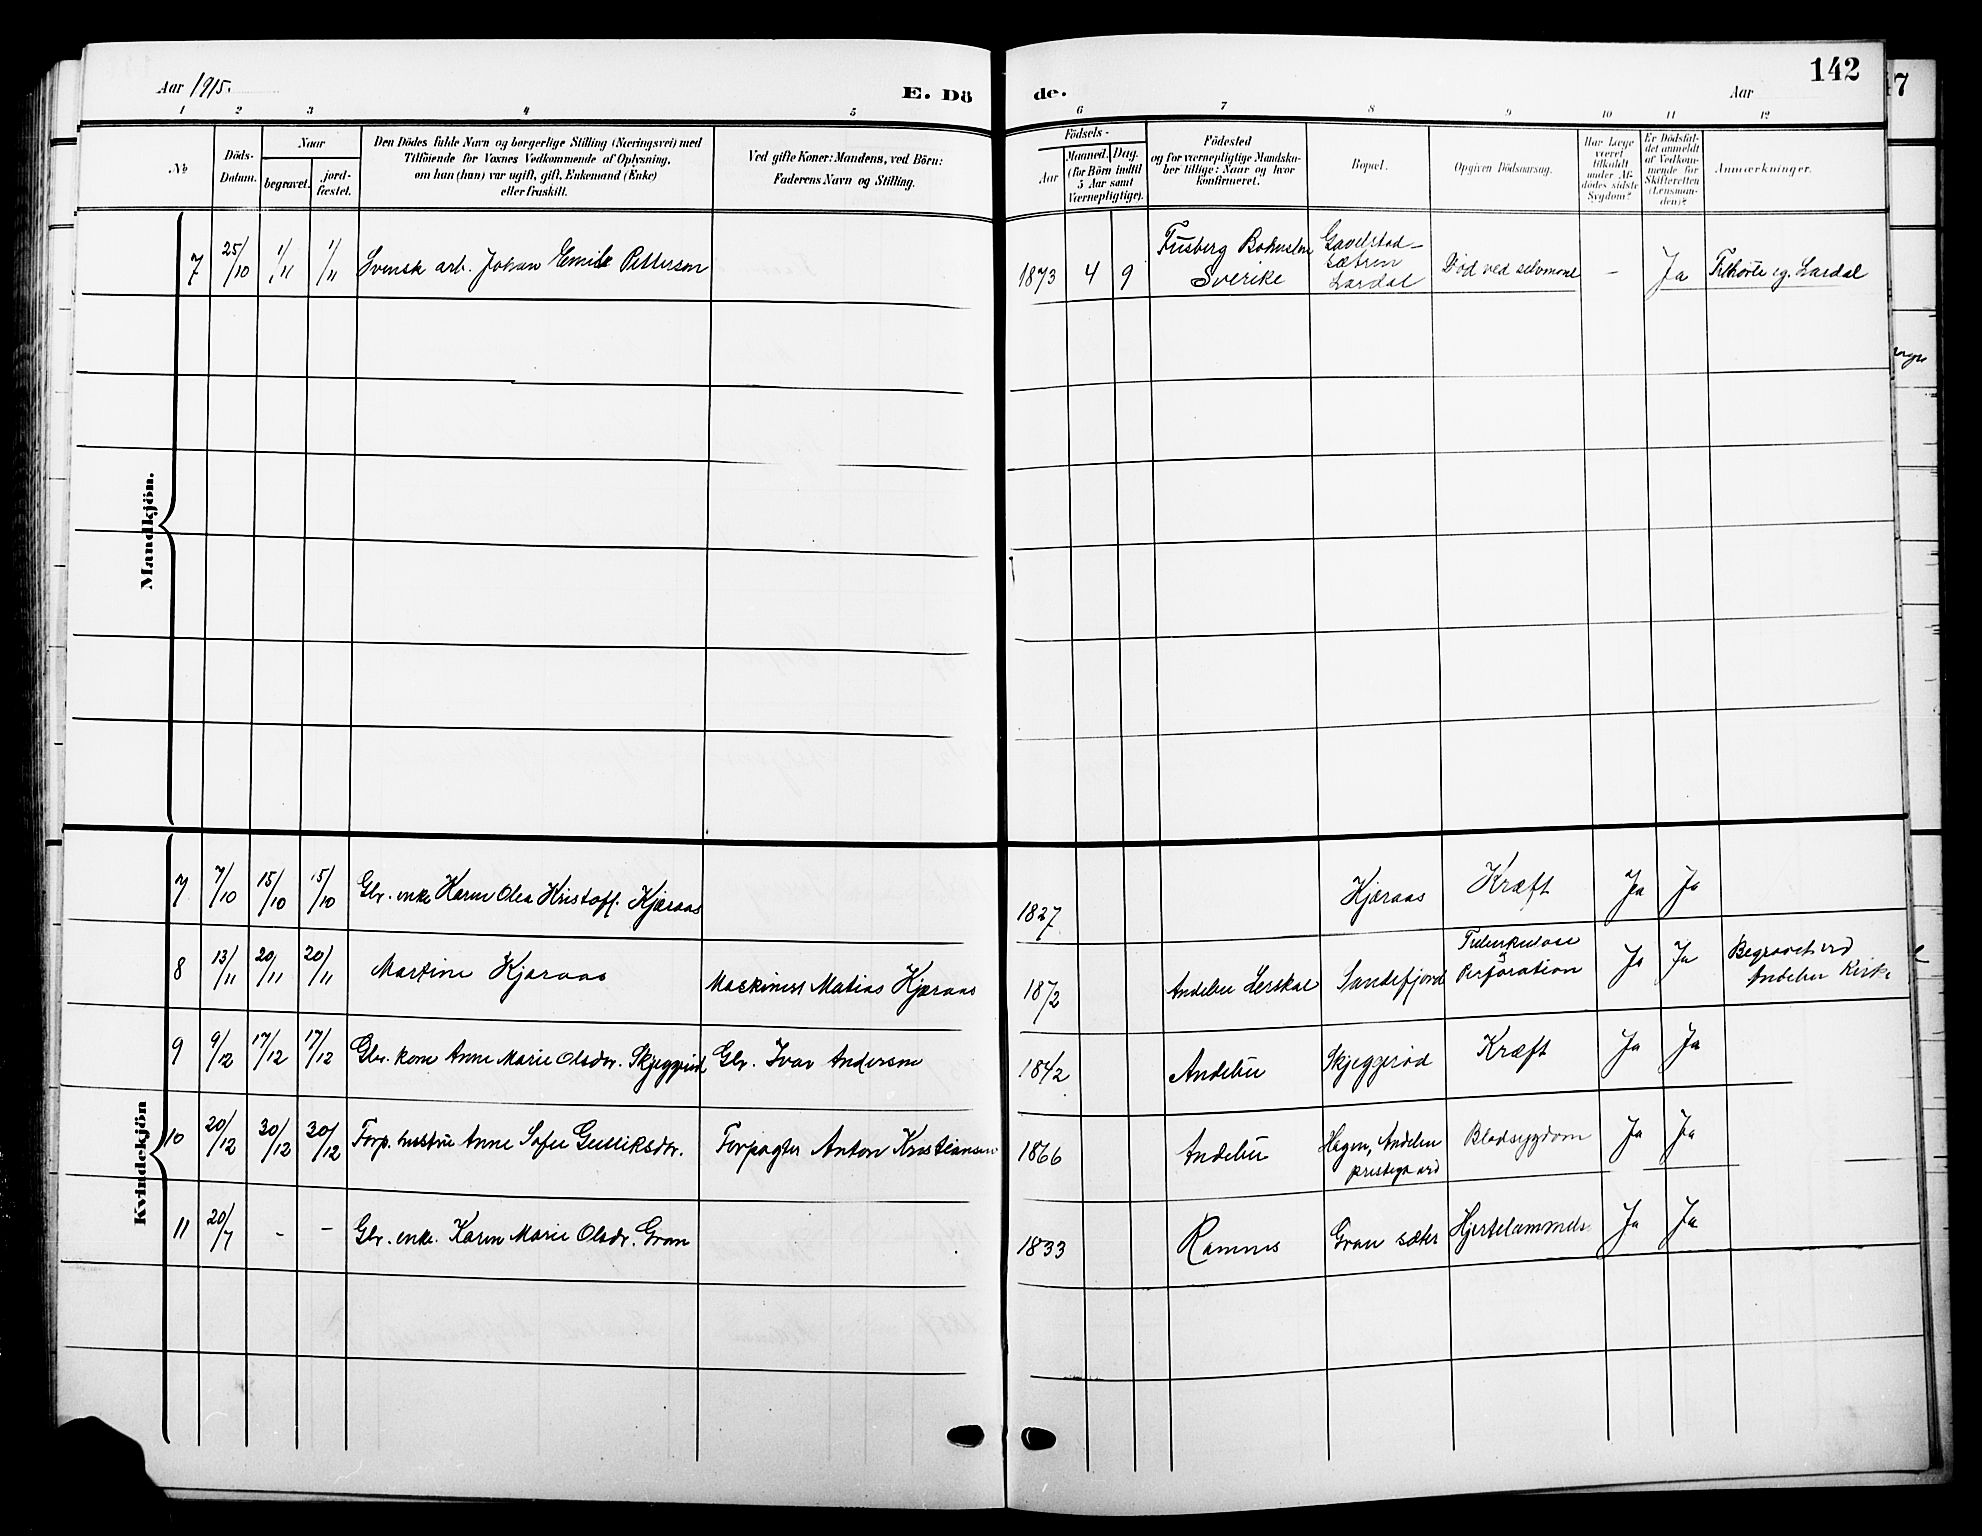 Aar 1915.
E. Dö
de.
Aar
142
1 2 3 4 5 6 7 8 9 10 11 12
No
Döds-
Datum.
Naar
begravet.
jord-
fæstet.
Den Dödes fulde Navn og borgerlige Stilling (Næringsvei) med
Tilföiende for Voxnes Vedkommende af Oplysning,
om han (hun) var ugift, gift, Enkemand (Enke)
eller fraskilt.
Ved gifte Koner: Mandens, ved Börn:
Faderens Navn og Stilling.
Födsels-
Aar
Maaned. Dag.
(for Börn indtil
5 Aar samt
Værnepligtige).
Födested
og for værnepligtige Mandska-
ber tillige: Naar og hvor
konfirmeret.
Bopæl.
Opgiven Dödsaarsag.
Har Læge
været
tilkaldt
under Af-
dödes sidste
Sygdom?
Er Dödsfal-
det anmeldt
af Vedkom-
mende for
Skifteretten
(Lensman-
den)?
Anmærkninger.
Mandkjön.
7 25/10 1/11 1/11 Svensk arb. Johan Emil Petterson 1873 4 9
Sverike
Gavelstad-
Sætren
Lardal
Död ved selvmord - Ja Tilhörte sg. Lardal
Kvindekjön
7 7/10 15/10 15/10 Gbr. enke Karen Olea Kristoff. Kjæraas 1827 Kjæraas Kræft Ja Ja
8 13/11 20/11 20/11 Martine Kjæraas Maskinist Matias Kjæraas 1872 Andebu Herskal Sandefjord
Tuberkulose
Perforation Ja Ja
Begravet ved
Andebu Kirke
9 9/12 17/12 17/12 Gbr. kone Anne Marie Olsdr. Skjeggerød Gbr. Ivar Anderson 1842 Andebu Skjeggerød Kræft Ja Ja
10 20/12 30/12 30/12 Forp. hustru Anne Sofie Gulliksdr. Forpagter Anton Kristiansen 1866 Andebu
Hagen, Andebu
prestegaard
Blodsygdom Ja Ja
11 20/7 - - Gbr. enke. Karen Marie Olsdr. Gran 1833 Ramnes Gran sæter Hjertelammels- Ja Ja